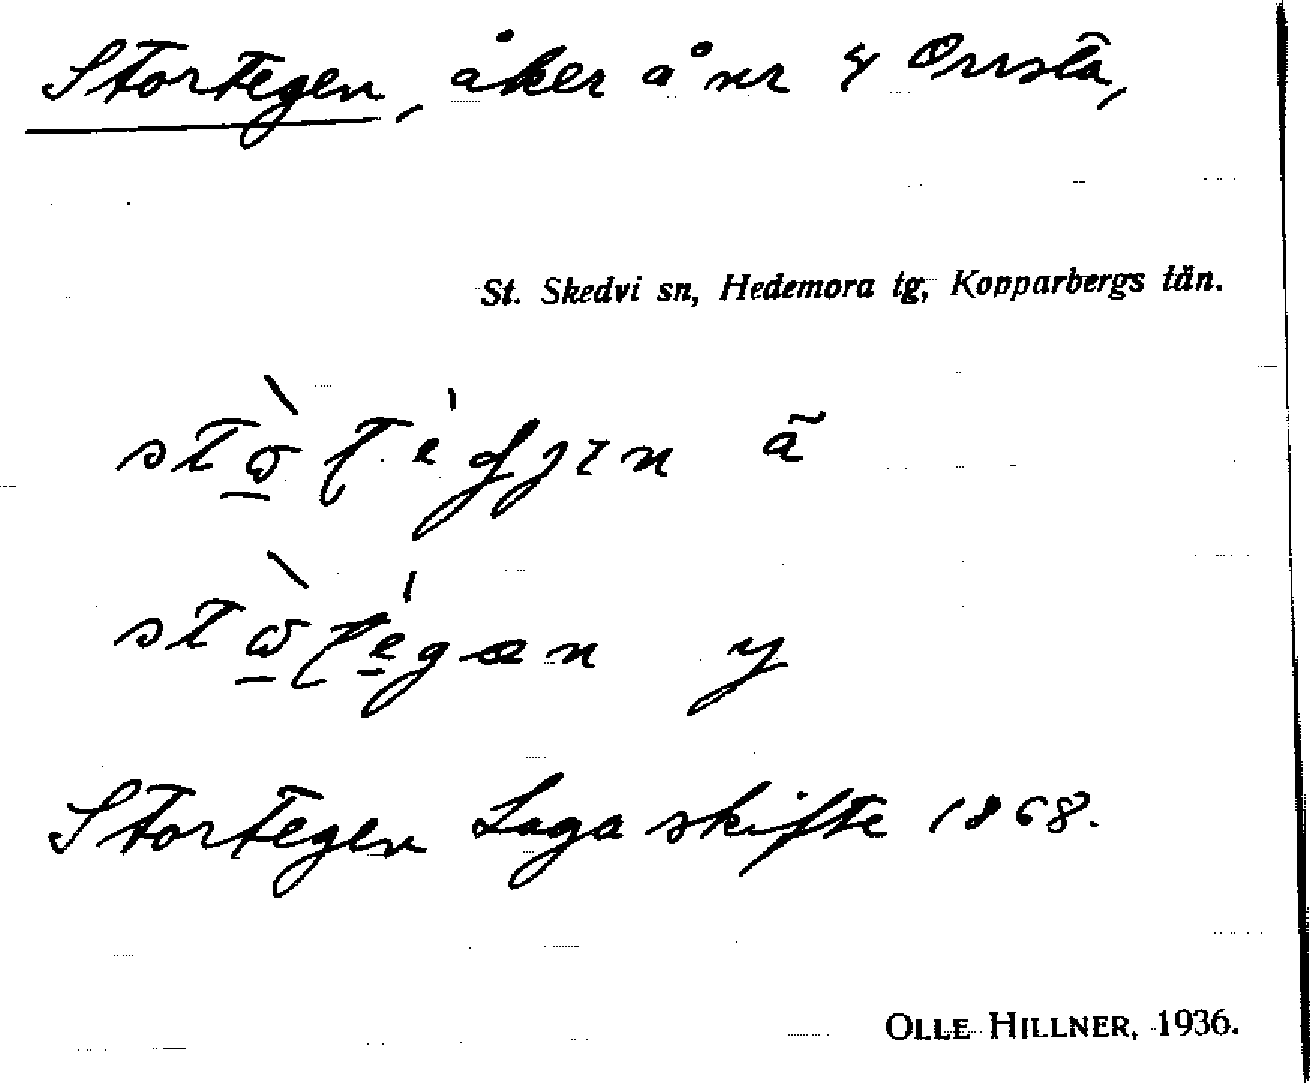 Stortegen, åker å nr 8 Orrsta,
St. Skedvi sn, Hedemora tg, Kopparbergs län.
ã
y
Stortegen Laga skifte 1868.
OLLE HILLNER, 1936.